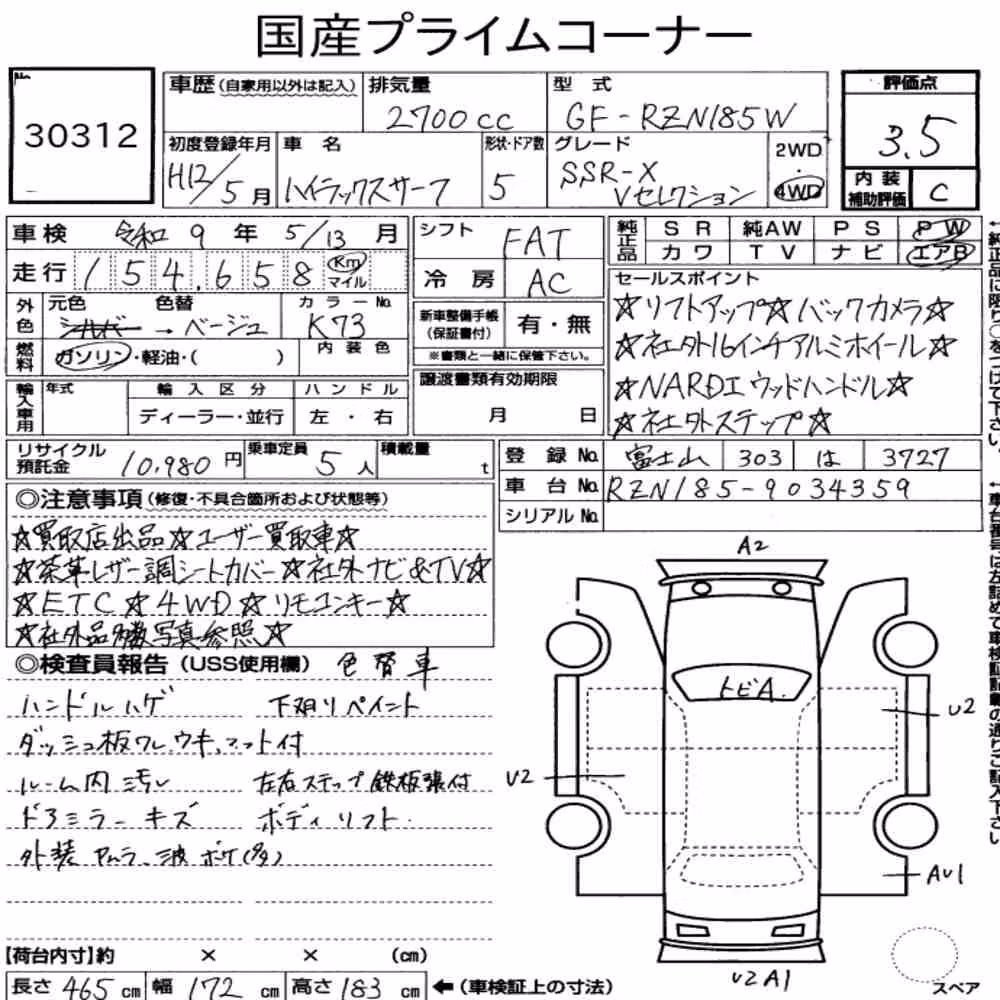 国産プライムコーナー
No.
30312
車歴(自家用以外は記入) 排気量 型式 評価点
2700cc GF-RZN185W 3.5
初度登録年月 車名 形状・ドア数 グレード 2WD
H12/5月 ハイラックスサーフ 5 SSR-X Vセレクション 4WD
内装補助評価 C
車検 令和9年5/13月
走行 154,658 Km マイル
外色 元色 色替 カラーNo.
シルバー→ベージュ K73
燃料 ガソリン・軽油・( ) 内装色
輸入車用 年式 輸入区分 ハンドル
ディーラー・並行 左・右
シフト FAT
冷房 AC
新車整備手帳(保証書付) 有・無
※書類と一緒に保管下さい。
譲渡書類有効期限
月 日
純正品 SR 純AW PS PW
カワ TV ナビ エアB
セールスポイント
☆リフトアップ☆バックカメラ☆
☆社外16インチアルミホイール☆
☆NARDIウッドハンドル☆
☆社外ステップ☆
リサイクル預託金 10,980円 乗車定員 5人 積載量 t
登録No. 富士山 303 は 3727
車台No. RZN185-9034359
シリアルNo.
◎注意事項(修復・不具合箇所および状態等)
☆買取店出品☆ユーザー買取車☆
☆茶革レザー調シートカバー☆社外ナビ&TV☆
☆ETC☆4WD☆リモコンキー☆
☆社外品多数写真参照☆
◎検査員報告(USS使用欄) 色替車
ハンドルハゲ 下廻リペイント
ダッシュ板ワレ、ウキ、マット付
ルーム内汚レ 左右ステップ鉄板張付
ドアミラーキズ ボディリフト.
外装 波ボケ(多)
【荷台内寸】約 × × (cm)
長さ465cm 幅172cm 高さ183cm ←(車検証上の寸法)
A2
トビA.
U2
U2
AU1
U2A1
スペア
←純正品に限り○をつけて下さい。
←車台番号は左詰めで車検証記載の通りご記入下さい